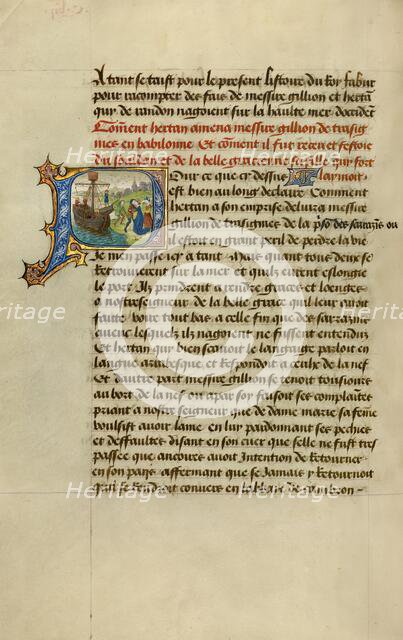 A tant se taist pour le present listoire du Roy fabur
pour racompter des fais de messire gillion et hertan
quy de randon nagoient sur la haulte mer doccident
Coment hertan amena messire gillion de trasig
nies en babilonne Et coment il fut receu et festoie
du souldan et de la belle gracienne sa fille quy fort
Our ce que cy dessus lay moit
est bien au long declaire Comment
hertan a son emprise delivra messire
gillion de trasignies de la prison des sarazins ou
il estoit en grant peril de perdre la vie
Je men passe icy a tant Mais quant tous deux se
Retrouverent sur la mer et quilz eurent eslongie
le port Ilz rendirent a rendre graces et loenges
a nostre seigneur de la belle grace quil leur avoit
faitte voire tout bas a celle fin que des sarazins
avecques lesquelz ilz nagoient ne fussent entendus
Et hertan quy bien scavoit le langage parloit en
langue et Respondoit a ceulx de la nef
Et dautre part messire gillion se tenoit tousiours
au bort de la nef ou a par soy faisoit ses complaintes
priant a nostre seigneur que de dame marie sa feme
voulsist avoir lame en luy pardonnant ses pechies
et deffaultes disant en son cuer que selle ne fust tres
passee que ancoires avoit Intention de Retourner
en son pays affermant que se Jamais y Retournoit
quil se Rendroit convers en labbaie de cambron
Heritage
Heritage
Heritage
Heritage
Heritage
Heritage